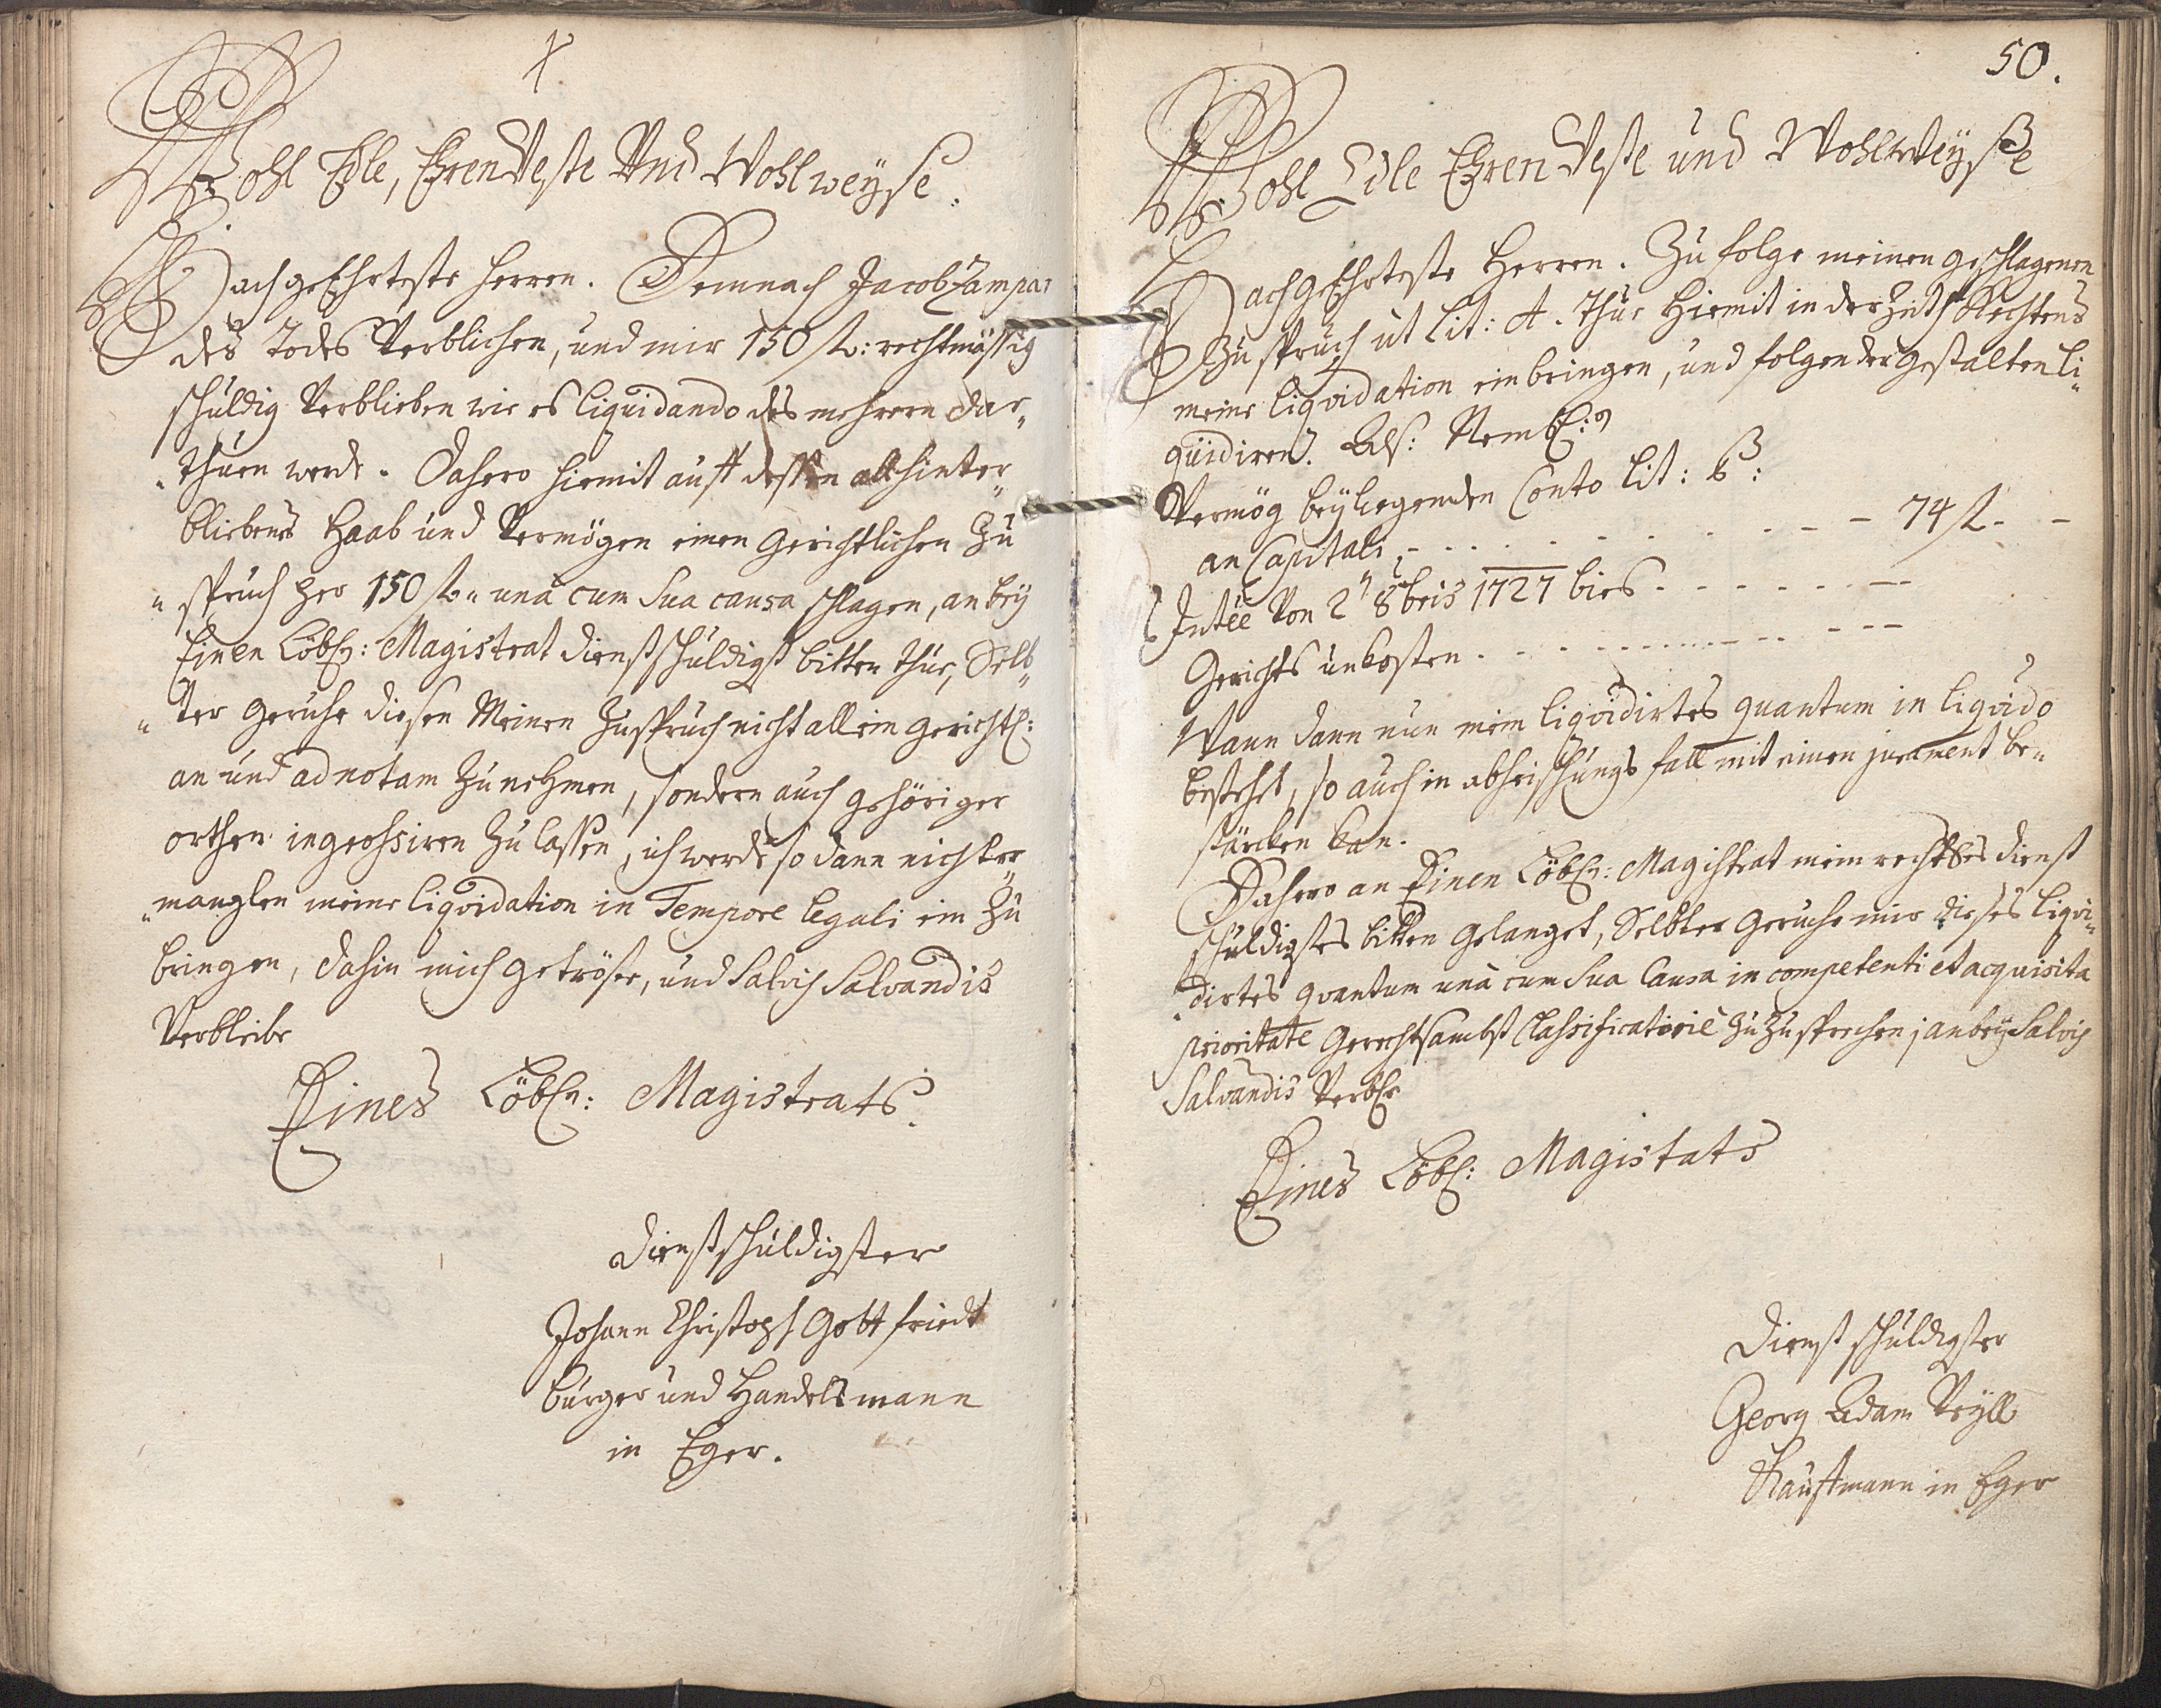 Wohl Edle, EhrenVeste Und Wohlweyse.
HochgeEhrteste Herren. Demnach Jacob Zampar
des Todes Verblichen, und mir 150 fl: rechtmässig
schuldig Verblieben wie es liquidando des mehrern dar„
„thuen werde. Dahero hiemit auff dessen all hinter„
bliebenes Haab und Vermögen einen Gerichtlichen Zu
„spruch per 150 fl„ unà cum Sua causa schlagen, anbey
Einen Löbl: Magistrat dienstschuldigst bitten thue, Selb„
„ter Geruhe diesen Meinen Zuspruch nicht allein gerichtl:
an und ad notam Zu nehmen, sondern auch gehöriger
orthen ingrohsiren Zu lassen, ich werde so dann nicht er„
„manglen meine liqvidation in Tempore legali ein Zu
bringen, dahin mich getröste, und Salvis Salvandis
Verbleibe
Eines Löbl: Magistrats.
dienstschuldigster
Johann Christoph Gottfriedt
burger und Handelsmann
in Eger.
50.
Wohl Edle EhrenVeste und Wohlweyße
HochgEhrteste Herren. Zu folge meinen geschlagenen
Zuspruch ut lit: A. thue hiemit in der Zeith Rechtens
meine liqvidation einbringen, und folgender gestalten li„
quidiren. Als: Nembl:
Vermög beyliegenden Conto lit: B:
an Capitali - - - - - - - 74 fl - -
Intéé Von 2 8bris 1727 bies - - - - - -
Gerichts unkosten - - - - - - - -
Wann dann nun mein liqvidirtes quantum in liqvido
bestehet, so auch in abheischungs fall mit einen jurament be„
stärcken kan.
Dahero an Einen Löbl: Magistrat mein rechtes dienst
schuldigstes bitten gelanget, Selbter Geruhe mir dieses liqvi„
„dirtes qvantum unà cum Sua Causa in competenti et acquisita
prioritate Gerechtsambst Classificatoriè Zu Zusprechen; anbey Salvis
Salvandis Verble
Eines Löbl: Magistats
Dienst schuldigster
Georg Adam
Kauffmann in Eger